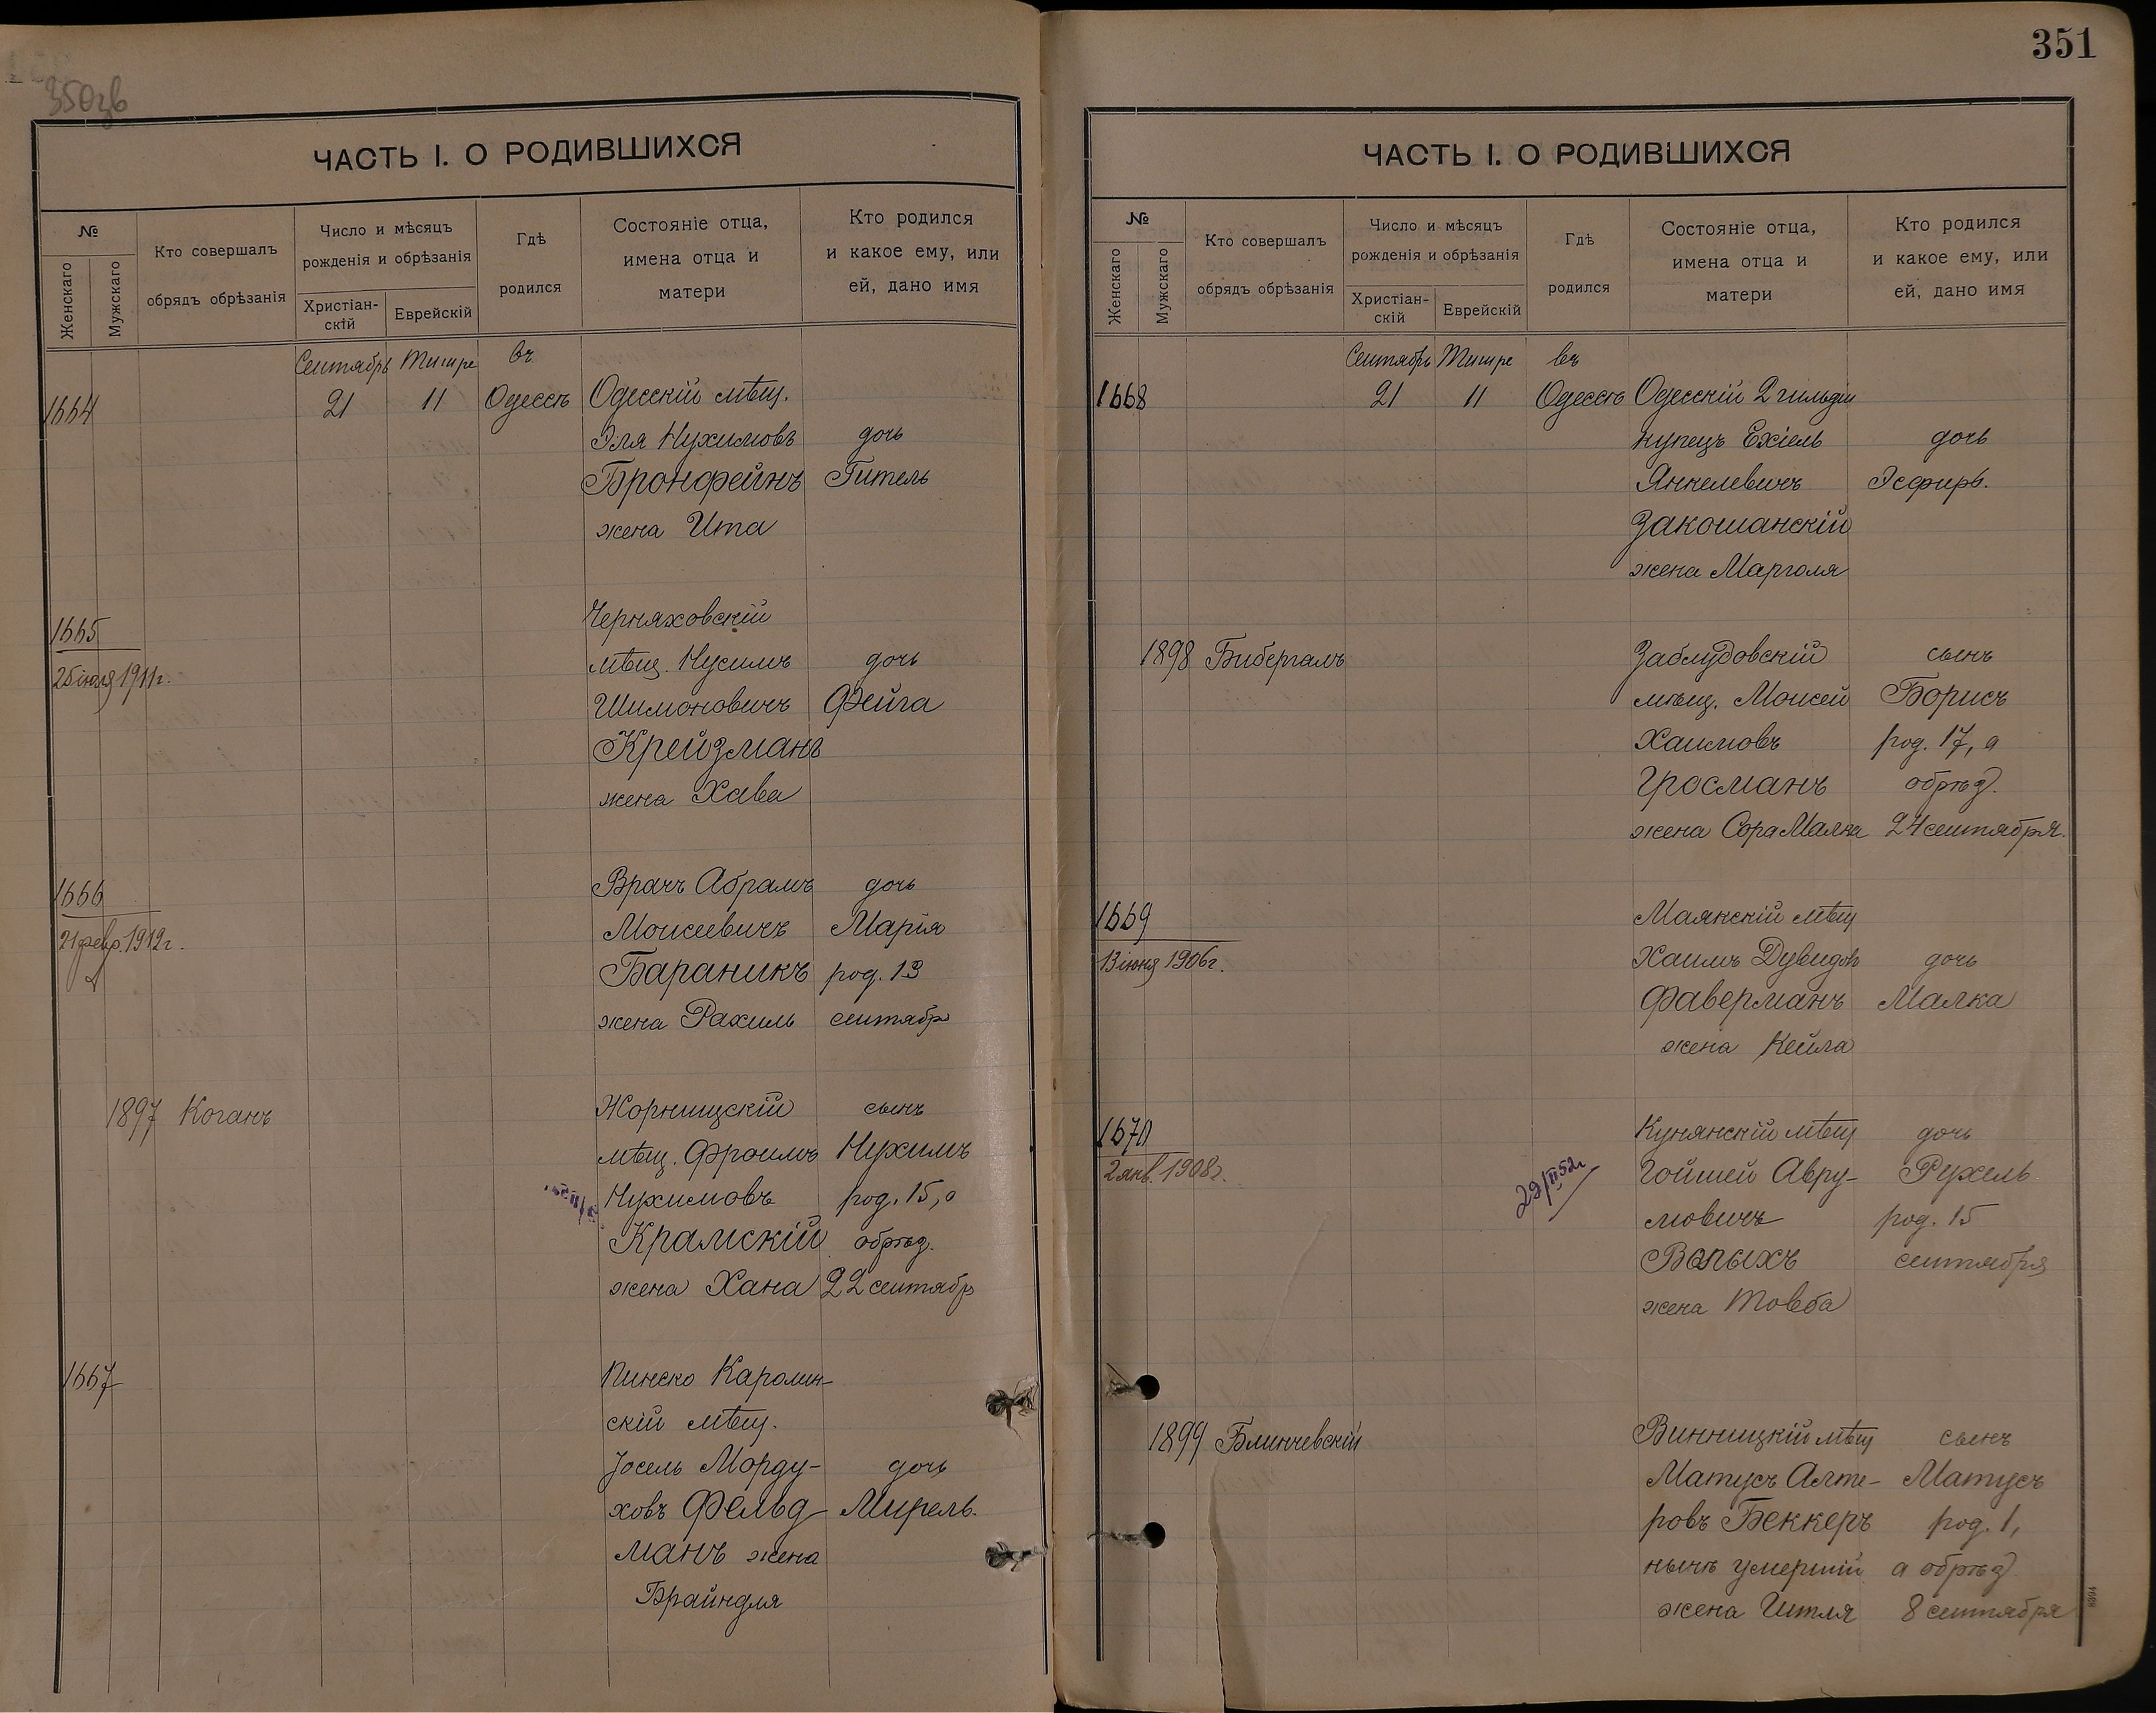 350зв
ЧАСТЬ I. О РОДИВШИХСЯ
№
Женскаго
Мужскаго
Кто совершалъ
обрядъ обрѣзанія
Число и мѣсяцъ
рожденія и обрѣзанія
Христіан-
скій
Еврейскій
Гдѣ
родился
Состояніе отца,
имена отца и
матери
Кто родился
и какое ему, или
ей, дано имя
Сентябрь Тишре въ
1664 21 11 Одессѣ Одесскій мѣщ.
Эля Нухимовъ дочь
Бронфейнъ Гитель
жена Ита
Черняховскій
1665
мѣщ. Нусимъ дочь
25 іюля 1911г.
Шимоновичъ Фейга
Крейзманъ
жена Хава
1666 Врачъ Абрамъ дочь
21 февр. 1912г. Моисеевичъ Марія
Бараникъ род. 13
жена Рахиль сентябр
1897 Коганъ Жорнищскій сынъ
мѣщ. Фроимъ Нухимъ
Нухимовъ род. 15, а
Крамскій обрѣз.
жена Хана 22 сентябр
1667 Пинско Каролин-
скій мѣщ.
Іосель Морду- дочь
ховъ Фельд- Мирель.
манъ жена
Брайндля
351
ЧАСТЬ I. О РОДИВШИХСЯ
№
Женскаго
Мужскаго
Кто совершалъ
обрядъ обрѣзанія
Число и мѣсяцъ
рожденія и обрѣзанія
Христіан-
скій
Еврейскій
Гдѣ
родился
Состояніе отца,
имена отца и
матери
Кто родился
и какое ему, или
ей, дано имя
Сентябрь Тишре въ
1668 21 11 Одессѣ Одесскій 2 гильдіи
купецъ Ехіель дочь
Янкелевичъ Эсфирь.
Закошанскій
жена Марголя
1898 Бибергалъ Заблудовскій сынъ
мѣщ. Моисей Борисъ
Хаимовъ род. 17, а
Гросманъ обрѣз.
жена Сора Малка 24 сентября.
1669 Маянскій мѣщ
13 іюня 1906г. Хаимъ Дувидовъ дочь
Фаверманъ Малка
жена Кейла
1670 Кунянскій мѣщ дочь
2 янв. 1908г. 29/II 52г Гойшей Авру- Рухель
мовичъ род. 15
сентября
жена Товба
1899 Блинчевскій Винницкій мѣщ сынъ
Матусъ Алте- Матусъ
ровъ Беккеръ род. 1,
нынѣ умершій а обрѣз.
жена Итля 8 сентября